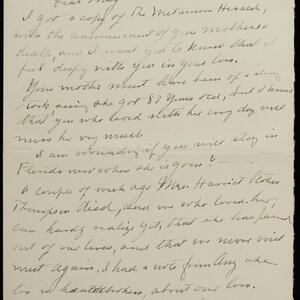 Dear Mary
I got a copy of The Metamora Herald,
with the announcement of your mothers
death, and I want you to know that I
feel deeply with you in your loss.
Your mother must have been of a strong
stock seeing she got 87 years old, but I know
that you who lived with her every day will
miss her very much
I am wondering if you will stay in
Florida now when she is gone?
A couple of week ago Mrs. Harriet Stokes
Thompson died, and we who loved her,
can hardly realize yet, that she has passed
out of our lives, and that we never will
meet again, I had a note from Amy she
too is heartbroken, about our loss.